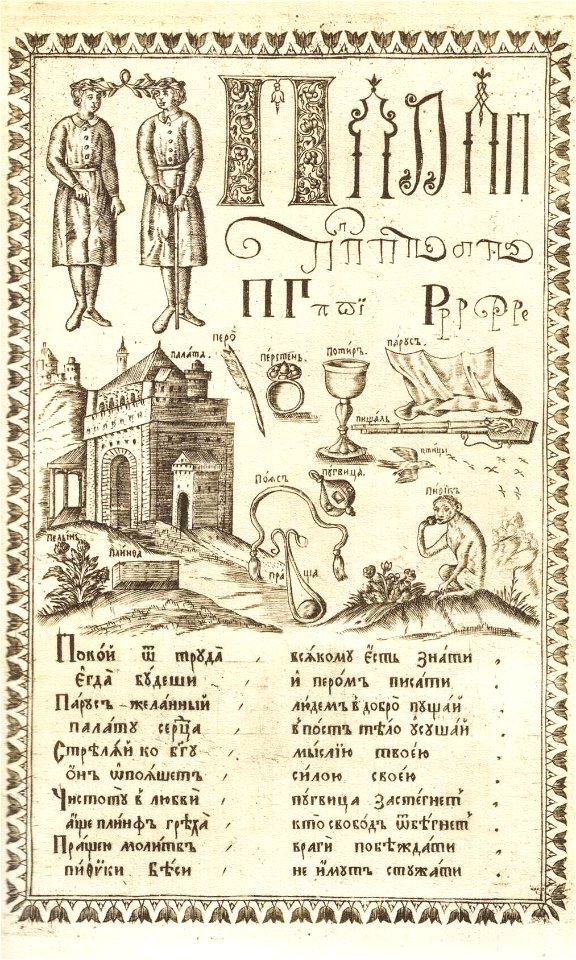 П П П П П
П П
П Г п ѡ ї Р р р р
перо̀
палата.
пе́рстень.
потиръ.
па́русъ.
пищаль
птицы
пугвица.
По́ясъ
пиѳікъ
пелынь
плинѳа
праща
Поко́й ѿ труда̀ , всѧкому є́сть зна́ти ,
є҆гда̀ бу́деши , и҆ перо́мъ писа́ти ,
Па́русъ жела́нный , лю́демъ в добро̀ пуща́й ,
пала́ту се́рца , в по́стъ тѣ́ло ѹсуша́й ,
Стрѣлѧ́й ко бг҃у , мы́слїю твоє́ю ,
о҆́нъ ѡпоѧ́шетъ , си́лою своє́ю ,
Чистоту̀ в любвѝ , пу́гвица засте́гнетъ ,
а҆́ще пли́нѳъ грѣха̀ , кто̀ свобо́дъ ѿбѣ́гнетъ ,
Пра́щею моли́твъ , врагѝ побѣжда́ти ,
пиѳи́ки бѣ́си , не и҆́мутъ стужа́ти .